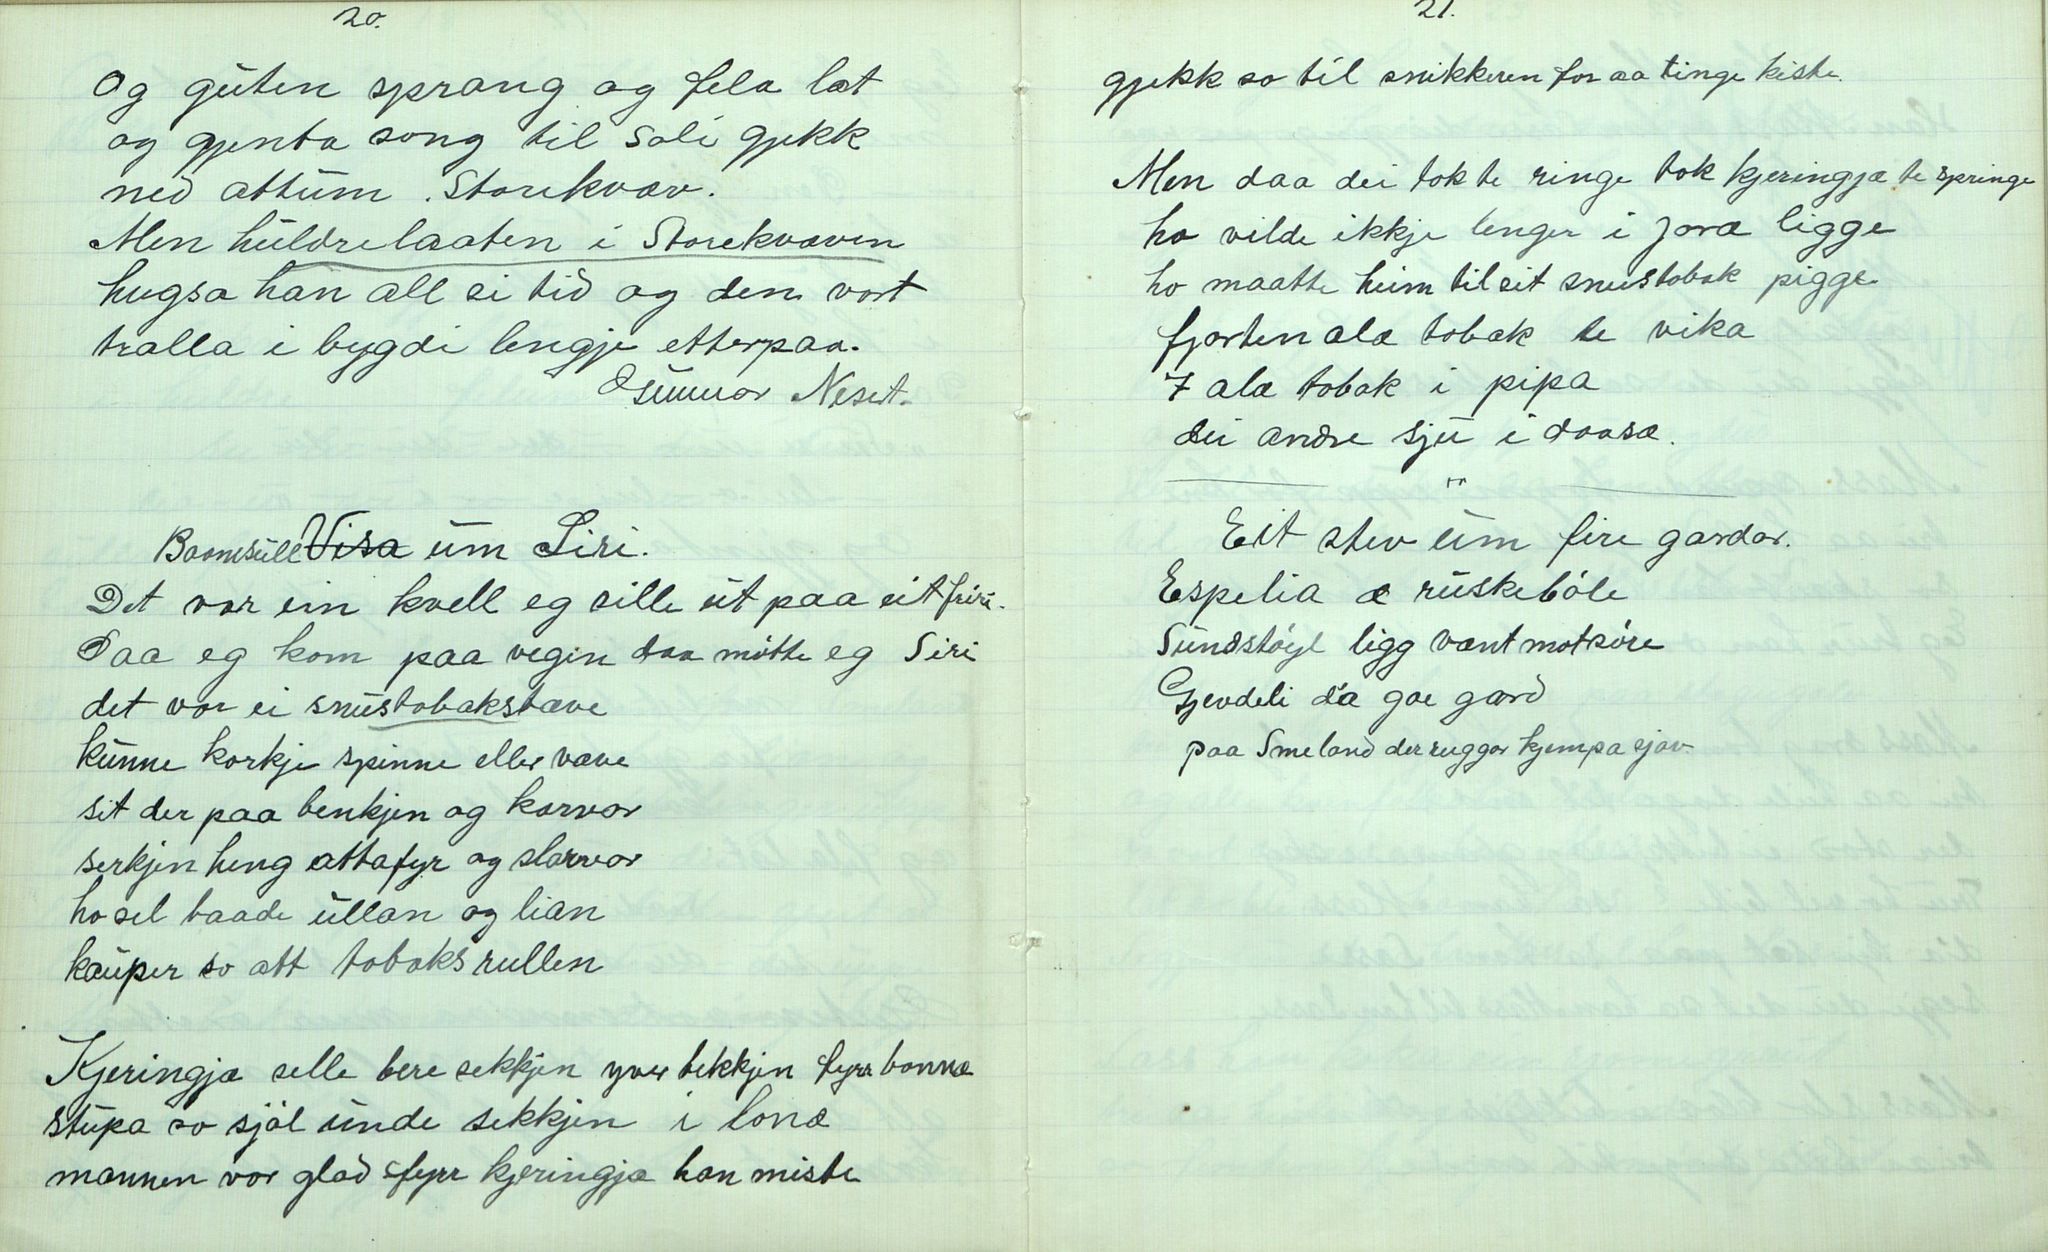 20.
Og guten sprang og fela læt
og gjenta song til soli gjekk
ned attum Storekvæv.
Men huldrelaaten i Storekvæven
hugsa han all si tid og den vart
tralla i bygdi lengje etterpaa.
Gunnar Neset.
Baansull Visa um Siri.
Det var ein kvell eg sille ut paa eit friri.
Daa eg kom paa vegin daa møtte eg Siri
det var ei snustobakstæve
kunne korkje spinne eller væve
sit der paa benkjen og karvar
serkjen heng attafyr og slarvar
ho sel baade ullan og lian
kauper so att toboks rullen
Kjeringjæ selle bere sekkjen yver bekkjen fyrr bonnæ
stupa so sjøl unde sekkjen i lonæ
mannen var glad fyrr kjeringjæ han miste
21.
gjekk so til snikkeren for aa tinge kiste.
Men daa dei tok te ringe tok kjeringjæ te springe
ho vilde ikkje lenger i joræ ligge
ho maatte heim til sit snustobak pigge
fjorten alæ tobak te vika
7 alæ tobak i pipa
dei andre sju i daasæ.
Eit stev um fire gardar.
Espelia æ ruskebøle
Sundstøyl ligg vænt mot søre
Gjevdeli d'æ goe gard
paa Smeland der ruggar kjempa sjav